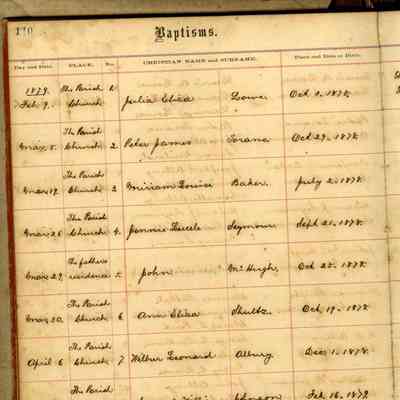 170
Baptisms.
Day and Date. PLACE. No. CHRISTIAN NAME and SURNAME. Place and Date of Birth.
1879. The Parish 1.
Feb. 9. Church Julia Eliza Lowe. Oct 8. 1878.
The Parish
Mar. 8. Church 2. Peter James Oct 29. 1878.
The Parish
Mar. 19. Church 3 Miriam Louise Baker. July 2. 1878.
The Parish
Mar. 26 Church 4. Jennie Seymour. Sept 21. 1878.
The fathers
Mar. 29. residence 5. John McHugh. Oct 25. 1878.
The Parish
Mar. 30. Church 6 Ann Eliza Shultz. Oct 19. 1878.
The Parish
April 6 Church 7 Wilbur Leonard Albury Dec. 1. 1878.
The Parish
Johnson Feb 16. 1879